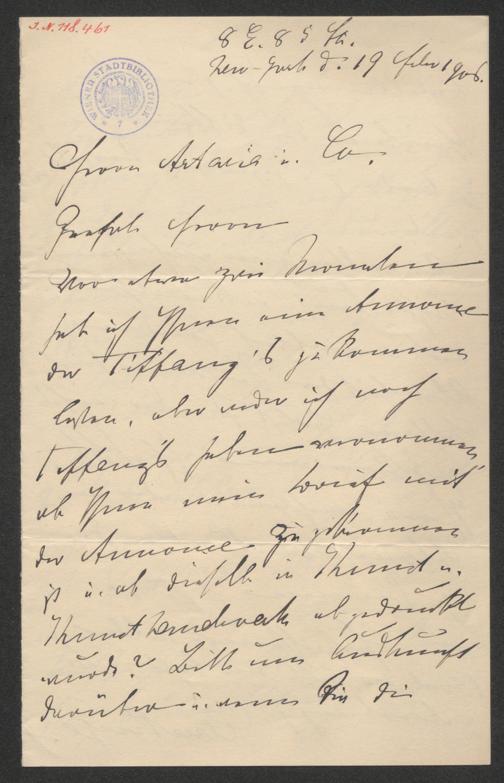 J.N. 118.461
WIENER STADTBIBLIOTHEK
8 E. 85 St.
New-York d. 19 Febr 1906.
Herrn Artaria u. Co.
Geehrte Herren
Vor etwa zwei Monaten
hab ich Ihnen eine Annonce
der Tiffany's zu kommen
lassen, aber weder ich noch
Tiffany's haben vernommen
ob Ihnen mein Brief mit
der Annonce zu gekommen
ist u. ob dieselbe in Kunst u.
Kunsthandwerk abgedruckt
wurde? Bitte um Auskunft
darüber u. wenn Sie die